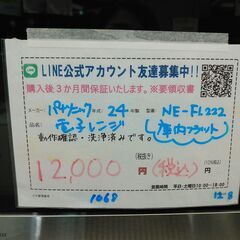 LINE公式アカウント友達募集中!!
購入後3か月間保証いたします。※要領収書
メーカー パナソニック 24年製 型番 NE-FL222
品名 電子レンジ (庫内フラット)
動作確認・洗浄済みです。
12,000円(税抜き) (税込) 円(10%税込)
営業時間 平日・土曜日10:00-18:00
1068
12-8